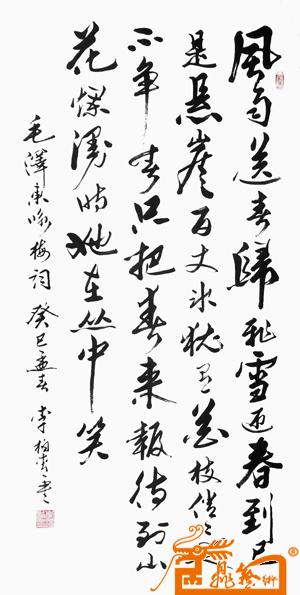 風雨送春歸飛雪迎春到已
是懸崖百丈冰猶有花枝俏俏也
不爭春只把春來報待到山
花爛漫時她在丛中笑
毛澤東咏梅詞 癸巳 春 李 書